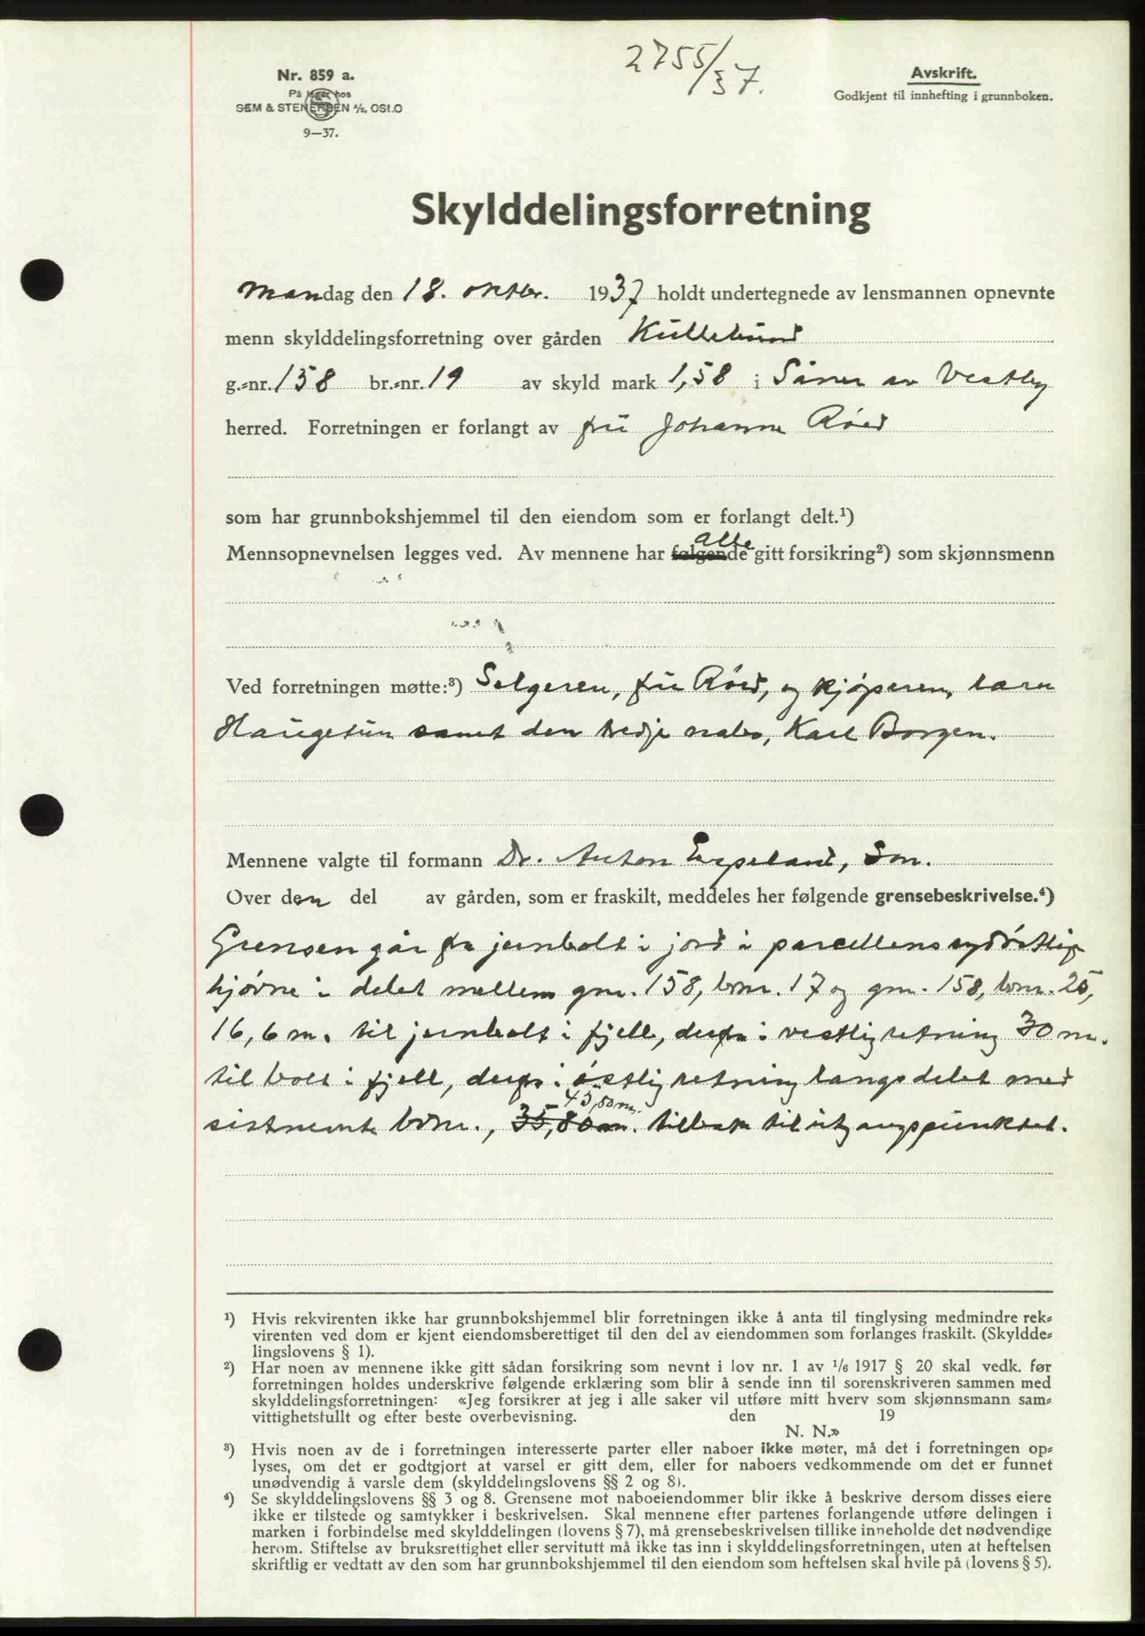 2755/37.
Nr. 859 a.
På lager hos
SEM & STENERSEN A/S. OSLO
9—37.
Avskrift.
Godkjent til innhefting i grunnboken.
Skylddelingsforretning
Mandag den 18. oktbr. 1937 holdt undertegnede av lensmannen opnevnte
menn skylddelingsforretning over gården Kullebund
g.=nr. 158 br.=nr. 19 av skyld mark 1,58 i Såner av Vestby
herred. Forretningen er forlangt av fru Johanne Röed
som har grunnbokshjemmel til den eiendom som er forlangt delt.¹)
alle
Mennsopnevnelsen legges ved. Av mennene har følgende gitt forsikring²) som skjønnsmenn
Ved forretningen møtte:³) Selgeren, fru Röed, og kjöperen,
Haugetun samt den tredje nabo, Karl Borgen.
Mennene valgte til formann Dr. Anton Espeland, Son.
Over den del av gården, som er fraskilt, meddeles her følgende grensebeskrivelse.⁴)
Grensen går fra jernbolt i jord i parcellens sydöstlige
hjörne i delet mellem gnr. 158, brnr. 17 og gnr. 158, brnr. 25,
16,6 m. til jernbolt i fjell, derfra i vestlig retning 30 m.
til bolt i fjell, derfra i östlig retning langs delet med
45,80 m.
sistnevnte brnr., 35,80 m. tilbake til utgangspunktet.
¹) Hvis rekvirenten ikke har grunnbokshjemmel blir forretningen ikke å anta til tinglysing medmindre rek=
virenten ved dom er kjent eiendomsberettiget til den del av eiendommen som forlanges fraskilt. (Skyldde=
lingslovens § 1).
²) Har noen av mennene ikke gitt sådan forsikring som nevnt i lov nr. 1 av 1/6 1917 § 20 skal vedk. før
forretningen holdes underskrive følgende erklæring som blir å sende inn til sorenskriveren sammen med
skylddelingsforretningen: «Jeg forsikrer at jeg i alle saker vil utføre mitt hverv som skjønnsmann sam=
vittighetsfullt og efter beste overbevisning. den 19
N. N.»
³) Hvis noen av de i forretningen interesserte parter eller naboer ikke møter, må det i forretningen op=
lyses, om det er godtgjort at varsel er gitt dem, eller for naboers vedkommende om det er funnet
unødvendig å varsle dem (skylddelingslovens §§ 2 og 8).
⁴) Se skylddelingslovens §§ 3 og 8. Grensene mot naboeiendommer blir ikke å beskrive dersom disses eiere
ikke er tilstede og samtykker i beskrivelsen. Skal mennene efter partenes forlangende utføre delingen i
marken i forbindelse med skylddelingen (lovens § 7), må grensebeskrivelsen tillike inneholde det nødvendige
herom. Stiftelse av bruksrettighet eller servitutt må ikke tas inn i skylddelingsforretningen, uten at heftelsen
skriftlig er vedtatt av den som har grunnbokshjemmel til den eiendom som heftelsen skal hvile på (lovens § 5).